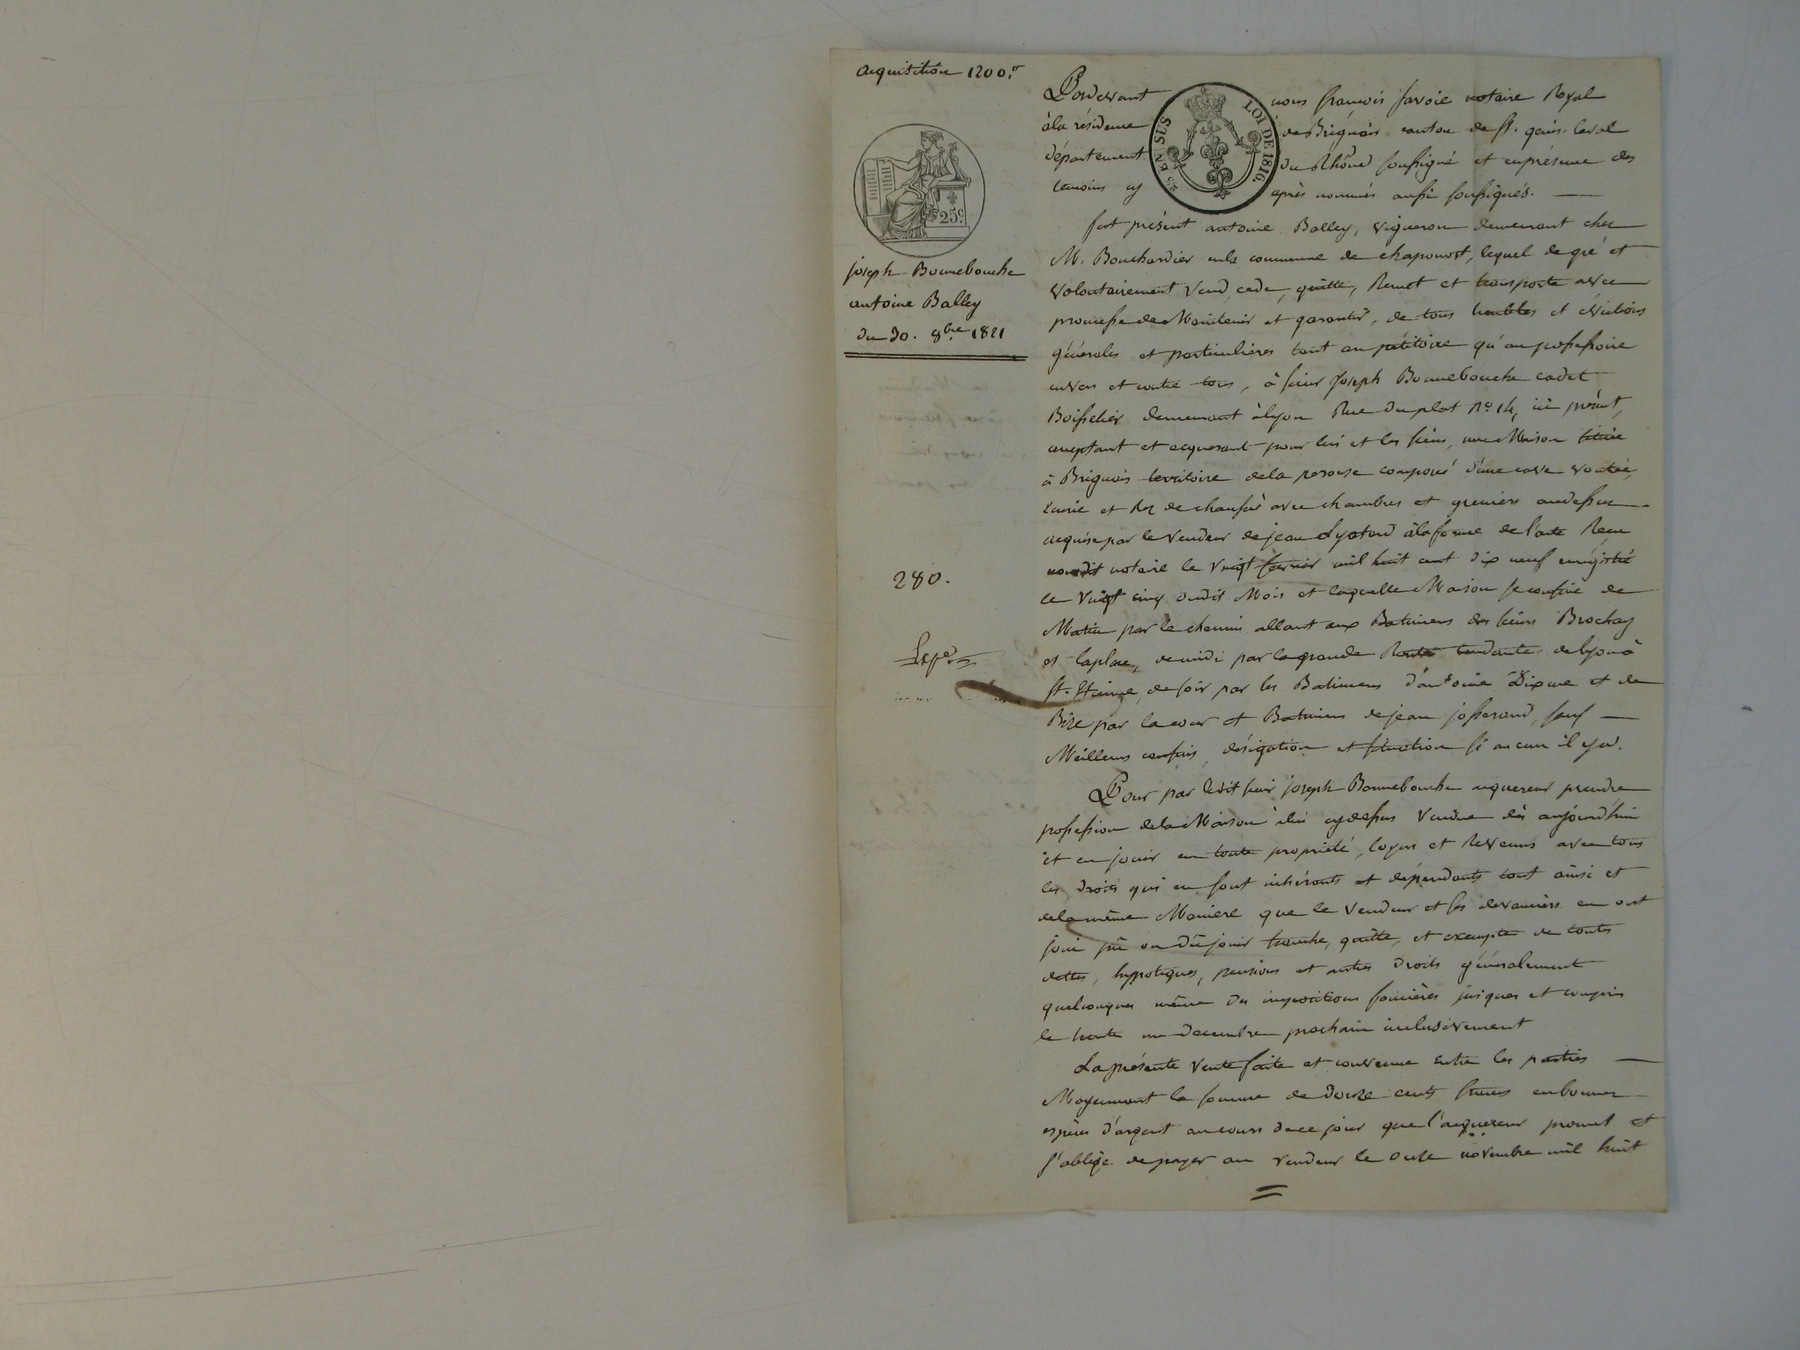 acquisition 1200.f
25c
joseph Bonnebouche
antoine Balley
du 30. 8bre 1821
280.
Expéd
2/5 EN SUS LOI DE 1816.
Pardevant nous françois favoie notaire Royal
à la résidence de Brignais canton de st. genis-laval
département du Rhône soussigné et en présence des
temoins cy après nommés aussi soussignés.
fut présent antoine Balley, vigneron demeurant chez
M. Bouchardier en la commune de chaponost, lequel de gré et
volontairement vend, cede, quitte, Remet et transporte avec
promesse de Maintenir et garantir, de tous troubles et évictions
générales et particulières tant au pétitoire qu'au possessoire
envers et contre tous, à sieur Joseph Bonnebouche cadet
Boisselier demeurant à lyon Rue du plat No. 14, ici présent,
acceptant et acquerant pour lui et les siens, une Maison située
à Brignais territoire de la composé d'une cave voutée,
écurie et Rez de chaussé avec chambres et greniers audessus
acquise par le Vendeur de jean Lyotard à la forme de l'acte Recu
notaire le vingt fevrier mil huit cent dix neuf enregistré
le vingt cinq dudit Mois et laquelle Maison se confine de
Matin par le chemin allant aux Batimens des sieurs Brochay
et laplace, de midi par la grande Route tendante de lyon à
St. Etienne, de soir par les Batimens d'antoine Dixme et de
Bize par la cour et Batimens de jean josserand, sauf
Meilleurs confins, désigation et situation si aucun il y a.
Pour par ledit sieur joseph Bonnebouche acquereur prendre
possession de la Maison à lui cy dessus Vendue dès aujourd'hui
et en jouir en toute propriété, loyers et Revenus avec tous
les droits qui en sont inhérants et dépendants tout ainsi et
de la même Maniere que le Vendeur et ses devanciers en ont
joui pû ou dû jouir franche, quitte, et exempte de toutes
dettes, hypoteques, pensions et autres droits généralement
quelconques même des impositions foncières jusques et compris
le trente un decembre prochain inclusivement
La présente Vente faite et convenue Entre les parties
Moyennant la somme de douze cents francs en bonnes
espèces d'argent au cours de ce jour que l'acquereur promet et
s'oblige de payer au vendeur le onze novembre mil huit